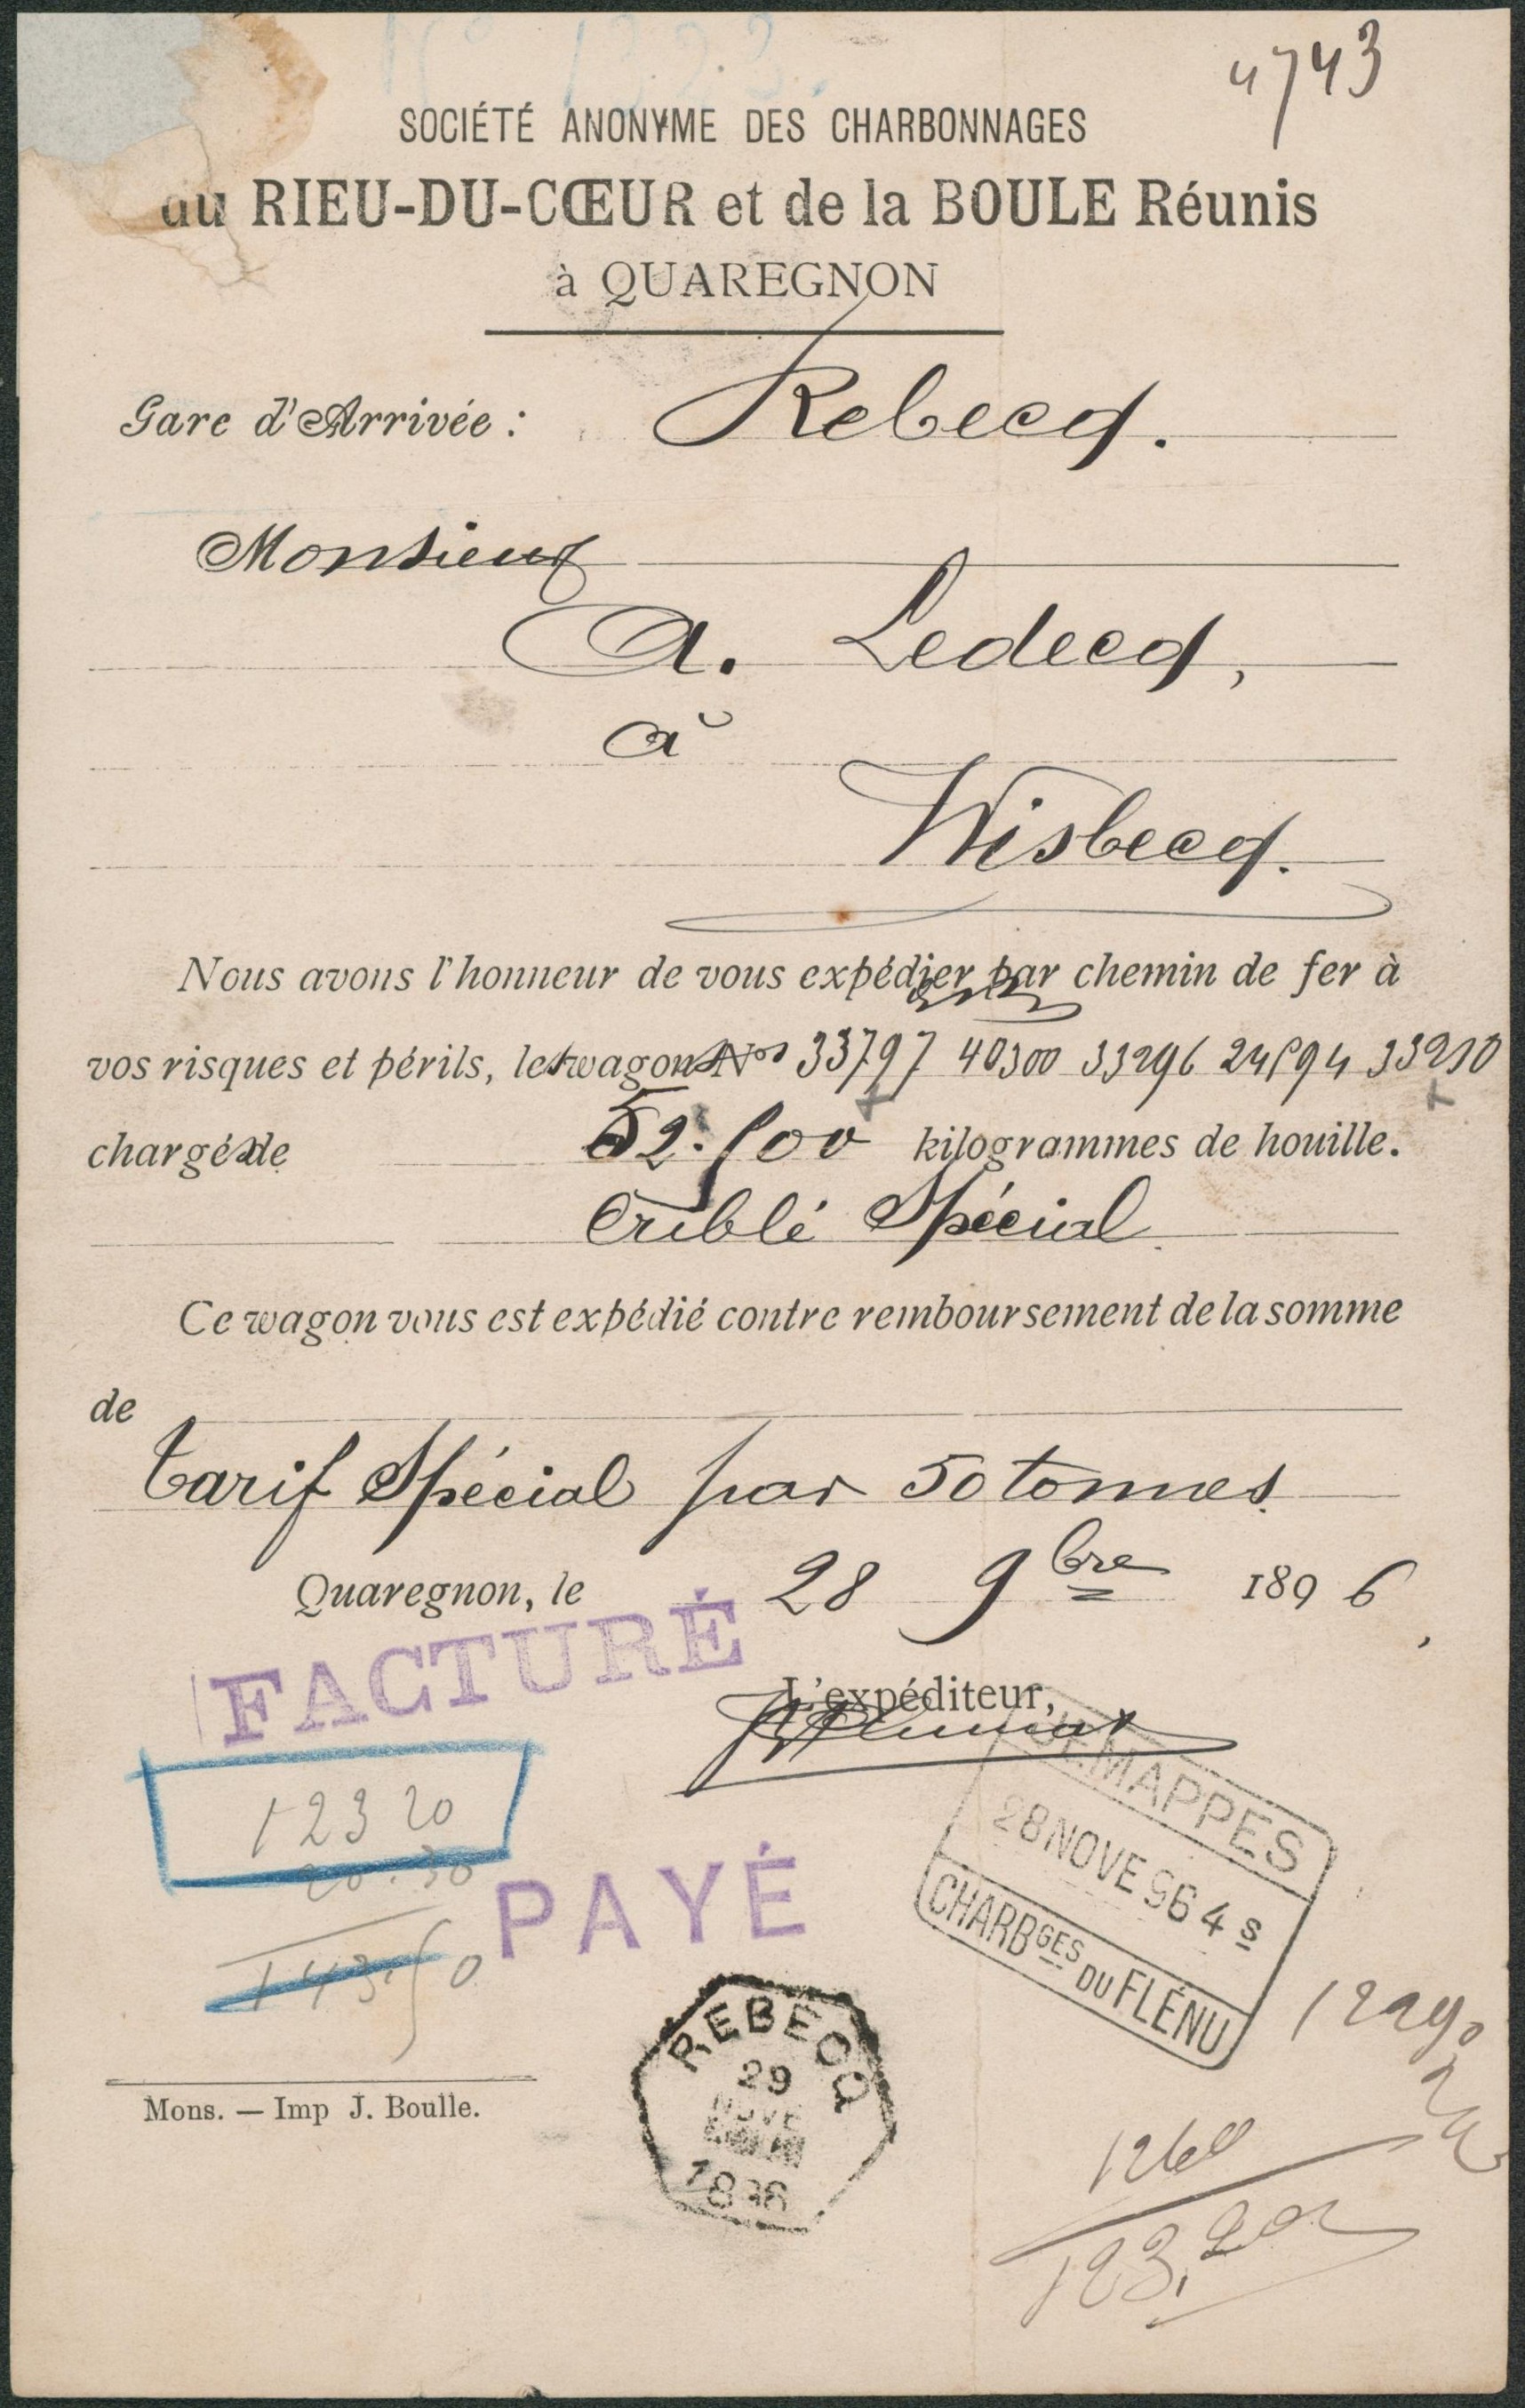 4743
SOCIÉTÉ ANONYME DES CHARBONNAGES
du RIEU-DU-CŒUR et de la BOULE Réunis
à QUAREGNON
Gare d'Arrivée : Rebecq.
Monsieur
A. Ledecq,
à
Wisbecq.
Nous avons l'honneur de vous expédier par chemin de fer à
vos risques et périls, les wagons Nos 33797 40300 33296 24594 33210
chargés de 52.500 kilogrammes de houille.
Criblé Spécial
Ce wagon vous est expédié contre remboursement de la somme
de
tarif Spécial par 50 tonnes
Quaregnon, le 28 9bre 1896
FACTURÉ
L'expéditeur,
JEMAPPES
28 NOVE 96 4 s
CHARBGES DU FLÉNU
123 20
20.30
143.50
PAYÉ
REBECQ
29
NOVE
1896
Mons. — Imp J. Boulle.
1260
123,20